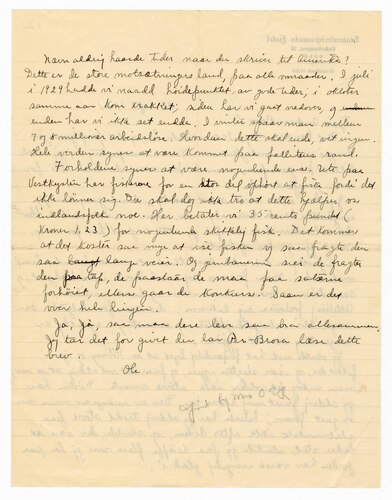 Nævn aldrig haarde tider naar du skriver til Amerika!
Dette er de store motsætningers land, paa alle omraader. I juli
i 1929 hadde vi naadd høidepunktet av gode tider, i oktober
samme aar kom krakket; siden har vi gaat nedover, og
enden har vi ikke set endda. I vinter spaar man mellem
7 og 8 millioner arbeidsløse. Hvordan dette skal ende, vet ingen.
Hele verden synes at være kommet paa fallittens rand.
Forholdene synes at være nogenlunde ens. Ute paa
Vestkysten har fiskerne for en stor del ophørt at fiske fordi det
ikke lønner sig. Du skal dog ikke tro at dette hjælper os
indlandsfolk noe. Her betaler vi 35 cents pundet (
Kroner 1.23) for nogenlunde skikkelig fisk. Det kommer
at det koster saa mye at ise fisken og saa fragte den
saa langt lange veier. Og jernbanerne sier de fragter
den paa tap, de paastaar de maa faa satserne
forhøiet, ellers gaar de konkurs. Saan er det
over hele linjen.
Ja, Ja, saa maa dere leve saa bra allesammen.
Jeg tar det for givet du lar Per-Brora læse dette
brev.
Ole.